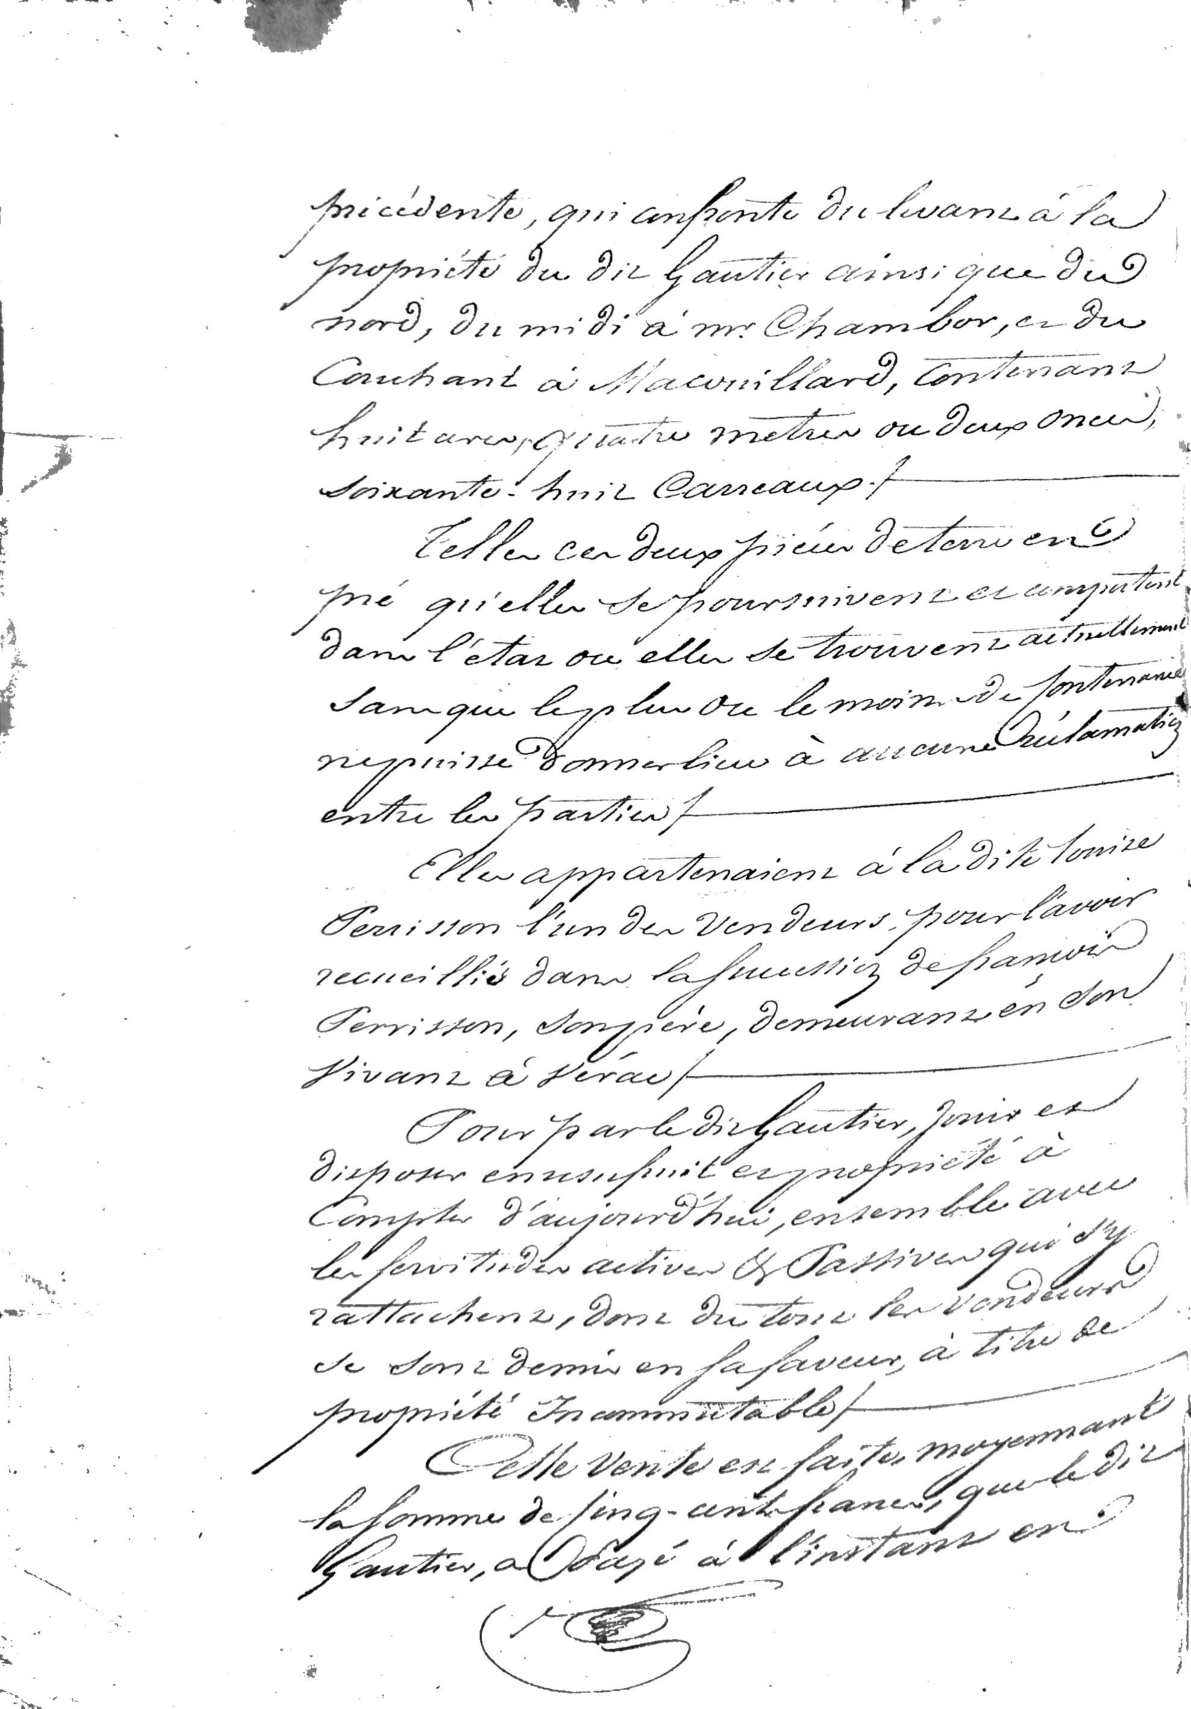 précédente, qui confronte du levant à la
propriété du dit Gautier ainsi que du
nord, du midi à mr. Chambor, et du
Couchant à contenant
huit ares, quatre mètres ou deux onces,
soixante-huit Carreaux./
Telles ces deux pièces de terre en
pré qu'elles se poursuivent et comportent
dans l'état ou elles se trouvent actuellement
sans que le plus ou le moins de contenance
ne puisse donner lieu à aucune réclamation
entre les parties/
Elles appartenaient à la dite Louise
Perrisson l'un des Vendeurs, pour l'avoir
recueillie dans la succession de françois
Perrisson, son père, demeurant en son
Vivant à Vérac/
Pour par le dit Gautier, jouir et
disposer en usufruit et propriété à
Compter d'aujourd'hui, ensemble avec
les servitudes actives & Passives qui s'y
rattachent, dont du tout les vendeurs
se sont demis en sa faveur, à titre de
propriété Incommutable/
Cette Vente est faite, moyennant
la somme de Cinq-cents francs, que le dit
Gautier, a Payé à l'instant en